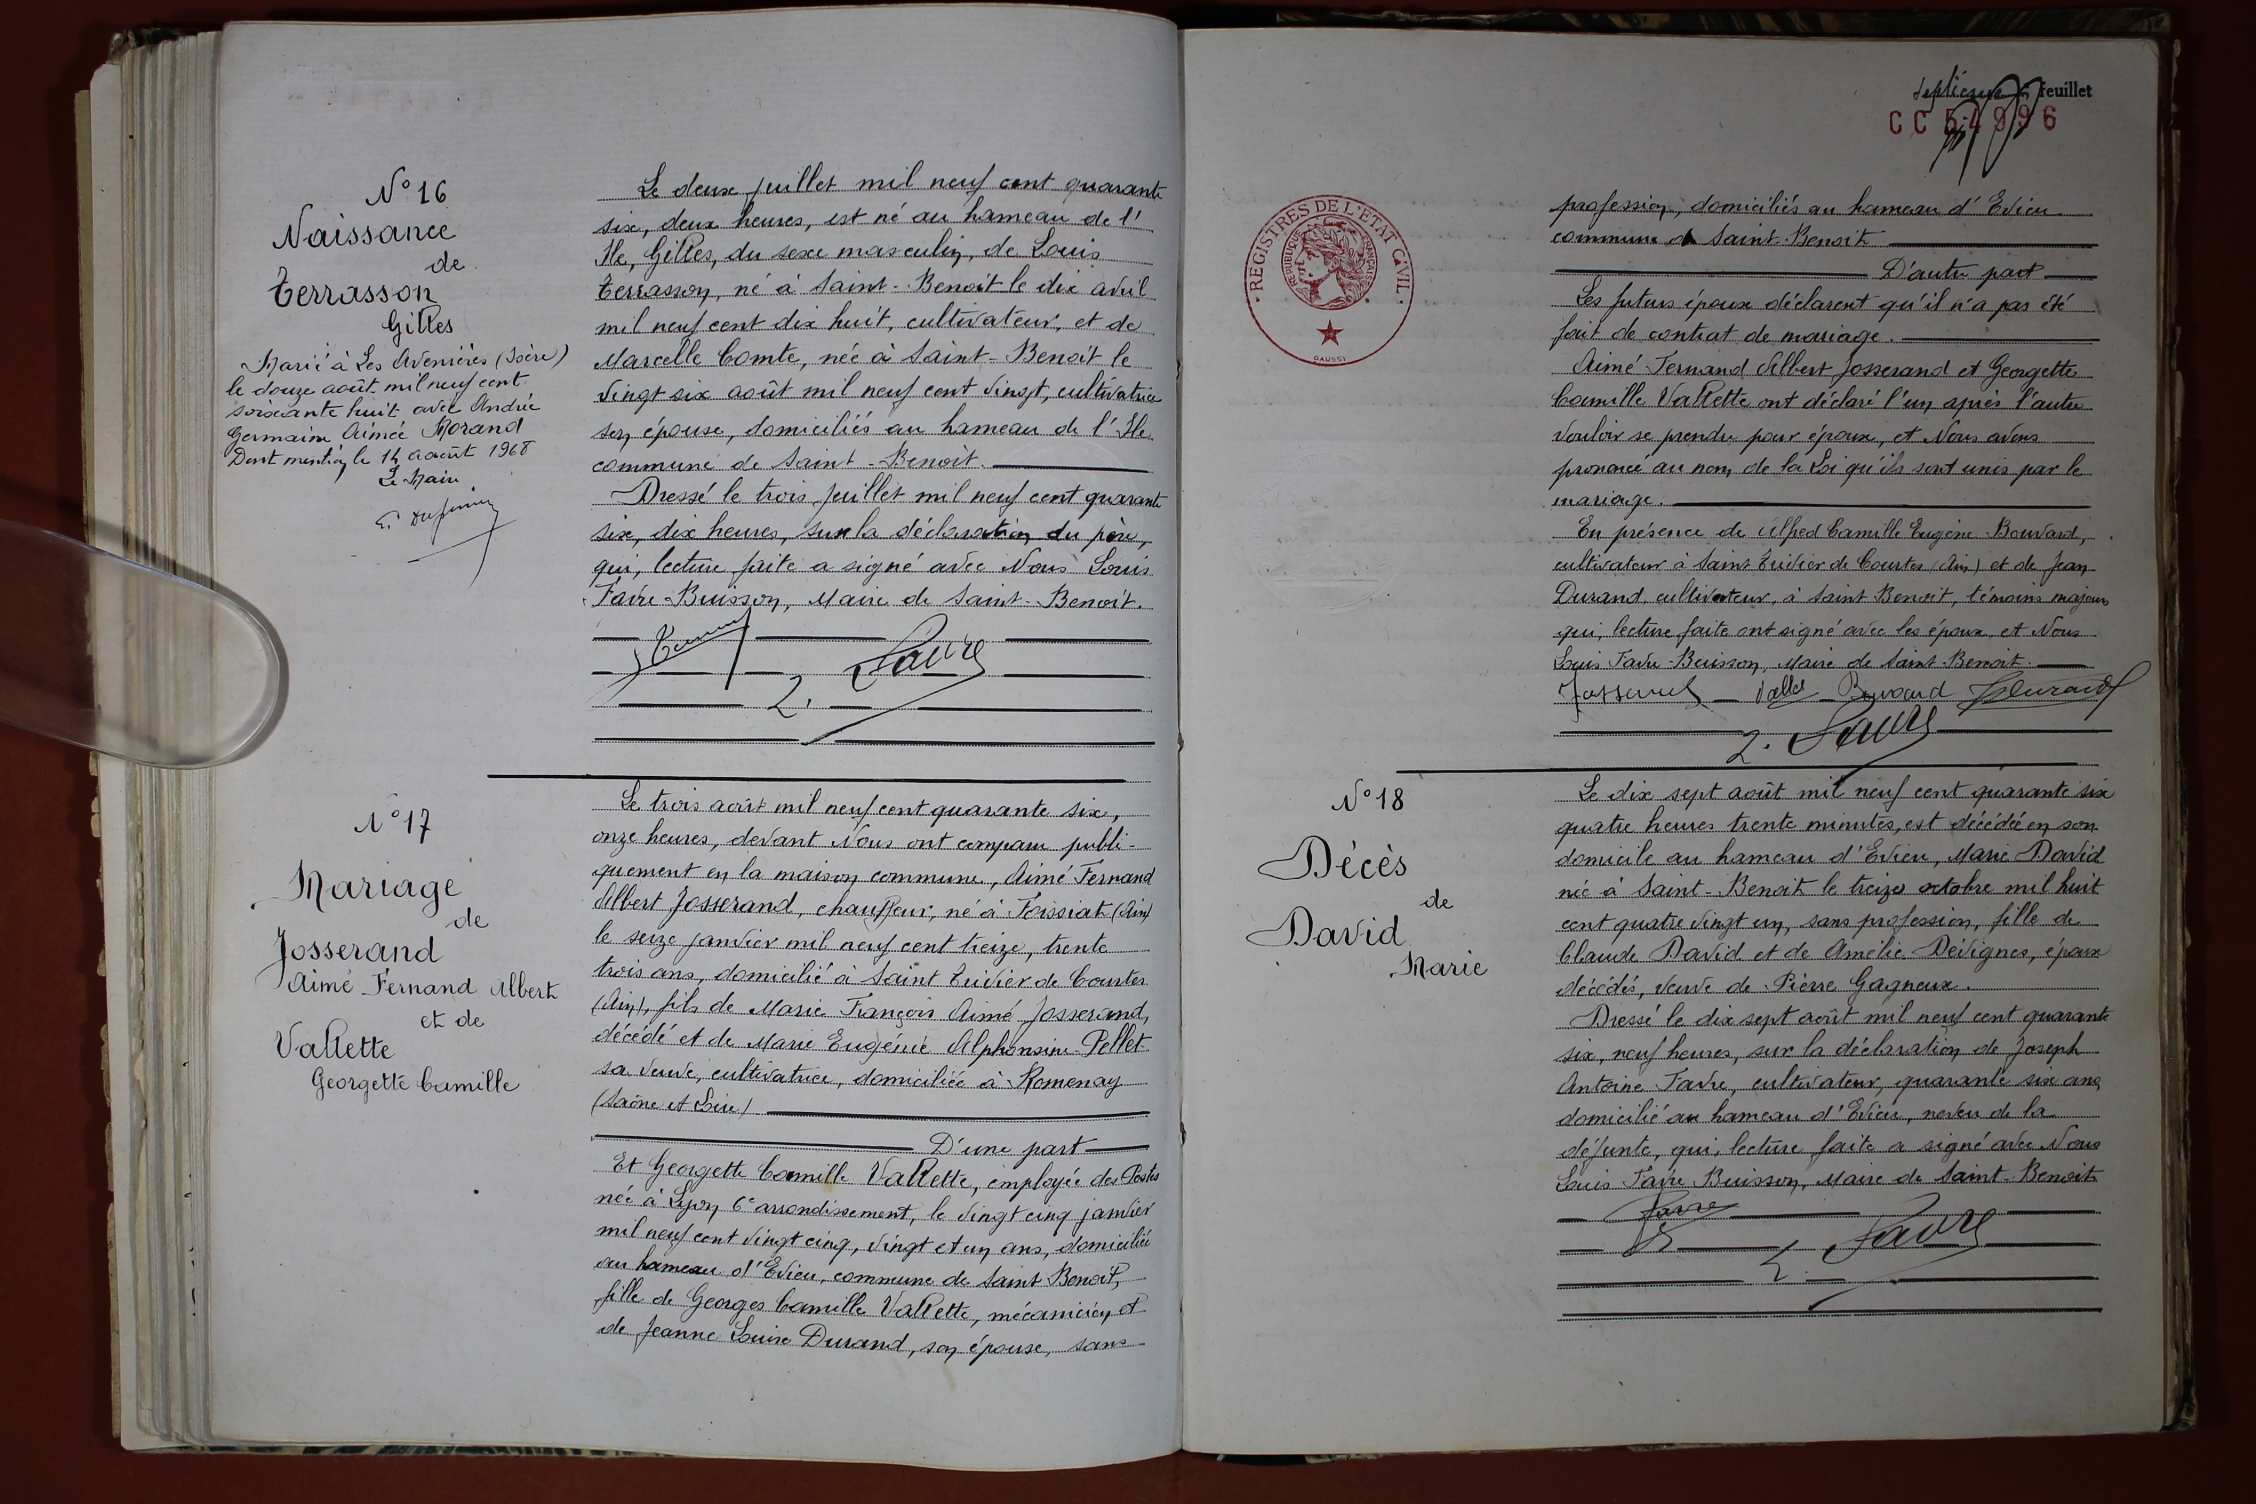 N° 16
Naissance
de
Terrasson
Gilles
Marié à Les Avenières (Isère)
le douze août mil neuf cent
soixante huit avec Andrée
Germaine Aimée Morand
Dont mention le 14 août 1968
Le Maire
Le deux juillet mil neuf cent quarante
six, deux heures, est né au hameau de l'
Ile, Gilles, du sexe masculin, de Louis
Terrasson, né à Saint-Benoit le dix avril
mil neuf cent dix huit, cultivateur, et de
Marcelle Comte, née à Saint-Benoit le
vingt six août mil neuf cent vingt, cultivatrice
son épouse, domiciliés au hameau de l'Ile
commune de Saint-Benoit.
Dressé le trois juillet mil neuf cent quarante
six, dix heures, sur la déclaration du père,
qui, lecture faite a signé avec Nous Louis
Favre-Buisson, Maire de Saint-Benoit.
L. Favre
N° 17
Mariage
de
Josserand
Aimé Fernand Albert
et de
Vallette
Georgette Camille
Le trois août mil neuf cent quarante six,
onze heures, devant Nous ont comparu publi-
quement en la maison commune, Aimé Fernand
Albert Josserand, chauffeur, né à Foissiat (Ain)
le seize janvier mil neuf cent treize, trente
trois ans, domicilié à Saint Trivier de Courtes
(Ain), fils de Marie François Aimé Josserand,
décédé et de Marie Eugénie Alphonsine Pellet
sa veuve, cultivatrice, domiciliée à Romenay
(Saône et Loire)
D'une part
Et Georgette Camille Vallette, employée des Postes
née à Lyon 6e arrondissement, le vingt cinq janvier
mil neuf cent vingt cinq, vingt et un ans, domiciliée
au hameau d'Evieu, commune de Saint Benoit,
fille de Georges Camille Vallette, mécanicien et
de Jeanne Louise Durand, son épouse, sans
septième feuillet
CC 54996
REGISTRES DE L'ETAT CIVIL
REPUBLIQUE FRANÇAISE
DAUSSI
profession, domiciliés au hameau d'Evieu
commune de Saint-Benoit
D'autre part
Les futurs époux déclarent qu'il n'a pas été
fait de contrat de mariage.
Aimé Fernand Albert Josserand et Georgette
Camille Vallette ont déclaré l'un après l'autre
vouloir se prendre pour époux, et Nous avons
prononcé au nom de la Loi qu'ils sont unis par le
mariage.
En présence de Alfred Camille Eugène Bouvard,
cultivateur à Saint Trivier de Courtes (Ain) et de Jean
Durand, cultivateur, à Saint Benoit, témoins majeurs
qui, lecture faite ont signé avec les époux et Nous
Louis Favre-Buisson, Maire de Saint-Benoit.
Josserand Bouvard Durand
L. Favre
N° 18
Décès
de
David
Marie
Le dix sept août mil neuf cent quarante six
quatre heures trente minutes, est décédée en son
domicile au hameau d'Evieu, Marie David
née à Saint-Benoit le treize octobre mil huit
cent quatre vingt un, sans profession, fille de
Claude David et de Amélie Devignes, époux
décédés, veuve de Pierre Gagneux.
Dressé le dix sept août mil neuf cent quarante
six, neuf heures, sur la déclaration de Joseph
Antoine Favre, cultivateur, quarante six ans
domicilié au hameau d'Evieu, neveu de la
défunte, qui, lecture faite a signé avec Nous
Louis Favre Buisson, Maire de Saint-Benoit
Favre
L. Favre